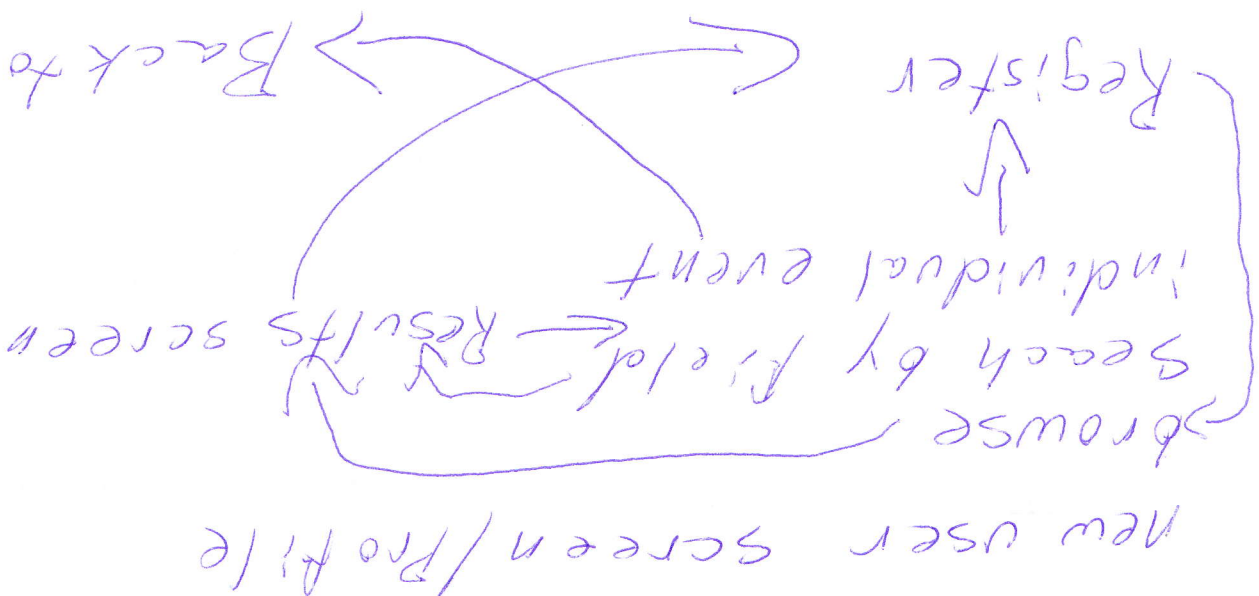 new user screen/Profile
browse
Seach by field Results screen
individual event
Register Back to